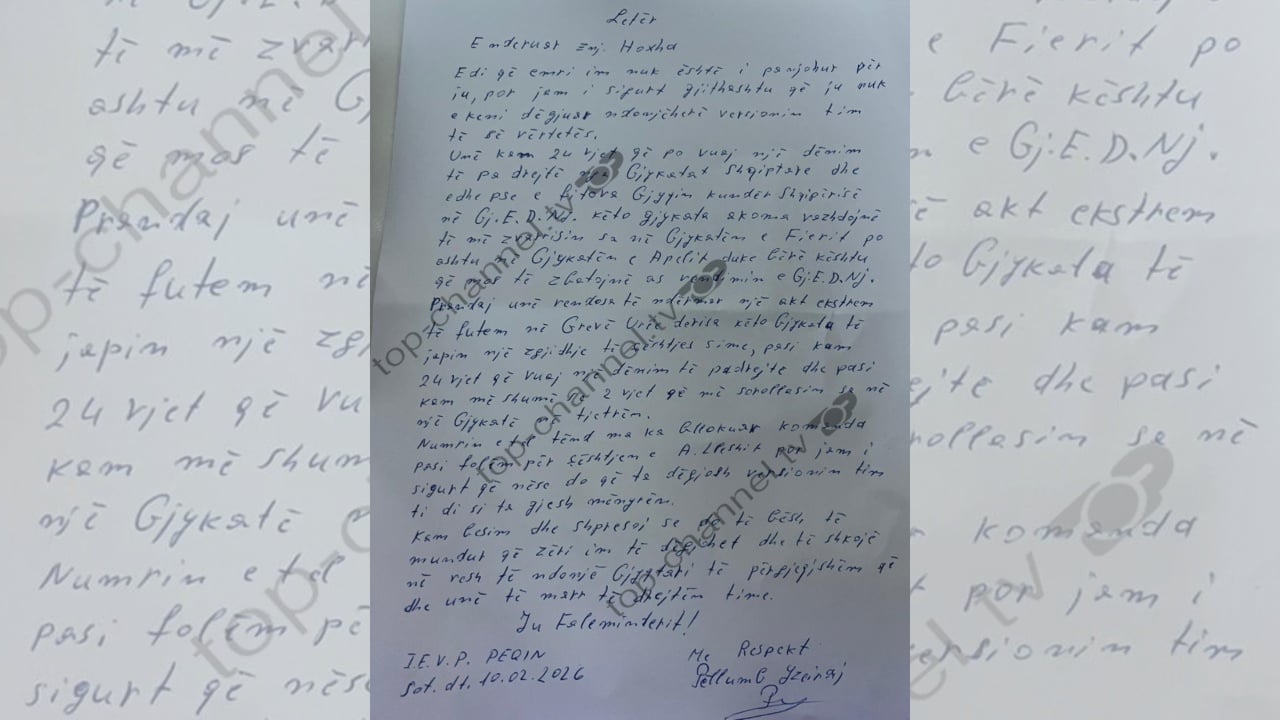 Letër
Enderuar Znj. Hoxha
Edi që emri im nuk është i panjohur për
ju, por jam i sigurt gjithashtu që ju nuk
e keni dëgjuar ndonjëherë versionin tim
të së vërtetës.
Unë kam 24 vjet që po vuaj një dënim
të pa drejtë nga Gjykatat Shqiptare dhe
edhe pse e fitova Gjyqin kundër Shqipërisë
në Gj.E.D.Nj. këto gjykata akoma vazhdojnë
të më zvarrisin sa në Gjykatën e Fierit po
ashtu në Gjykatën e Apelit duke bërë kështu
që mos të zbatojnë as vendimin e Gj.E.D.Nj.
Prandaj unë vendosa të ndërmar një akt ekstrem
të futem në Grevë Urie derisa këto Gjykata të
japin një zgjidhje të çështjes sime, pasi kam
24 vjet që vuaj një dënim të padrejte dhe pasi
kam më shumë se 2 vjet që më sorollasin sa në
një Gjykatë në tjetrën.
Numrin e tel tënd ma ka bllokuar komanda
pasi folëm për çështjen e A.Lleshit por jam i
sigurt që nëse do që ta dëgjosh versionin tim
ti di si ta gjesh mënyrën.
Kam besim dhe shpresoj se do të bësh të
mundur që zëri im të dëgjohet dhe të shkojë
në vesh të ndonjë Gjyqtari të përgjegjishëm që
dhe unë të marr të drejtën time.
Ju Faleminderit!
I.E.V.P. PEQIN
Sot. dt. 10.02.2026
Me Respekt
Pëllumb
top-channel.tv
top-channel.tv
top-channel.tv
top-channel.tv